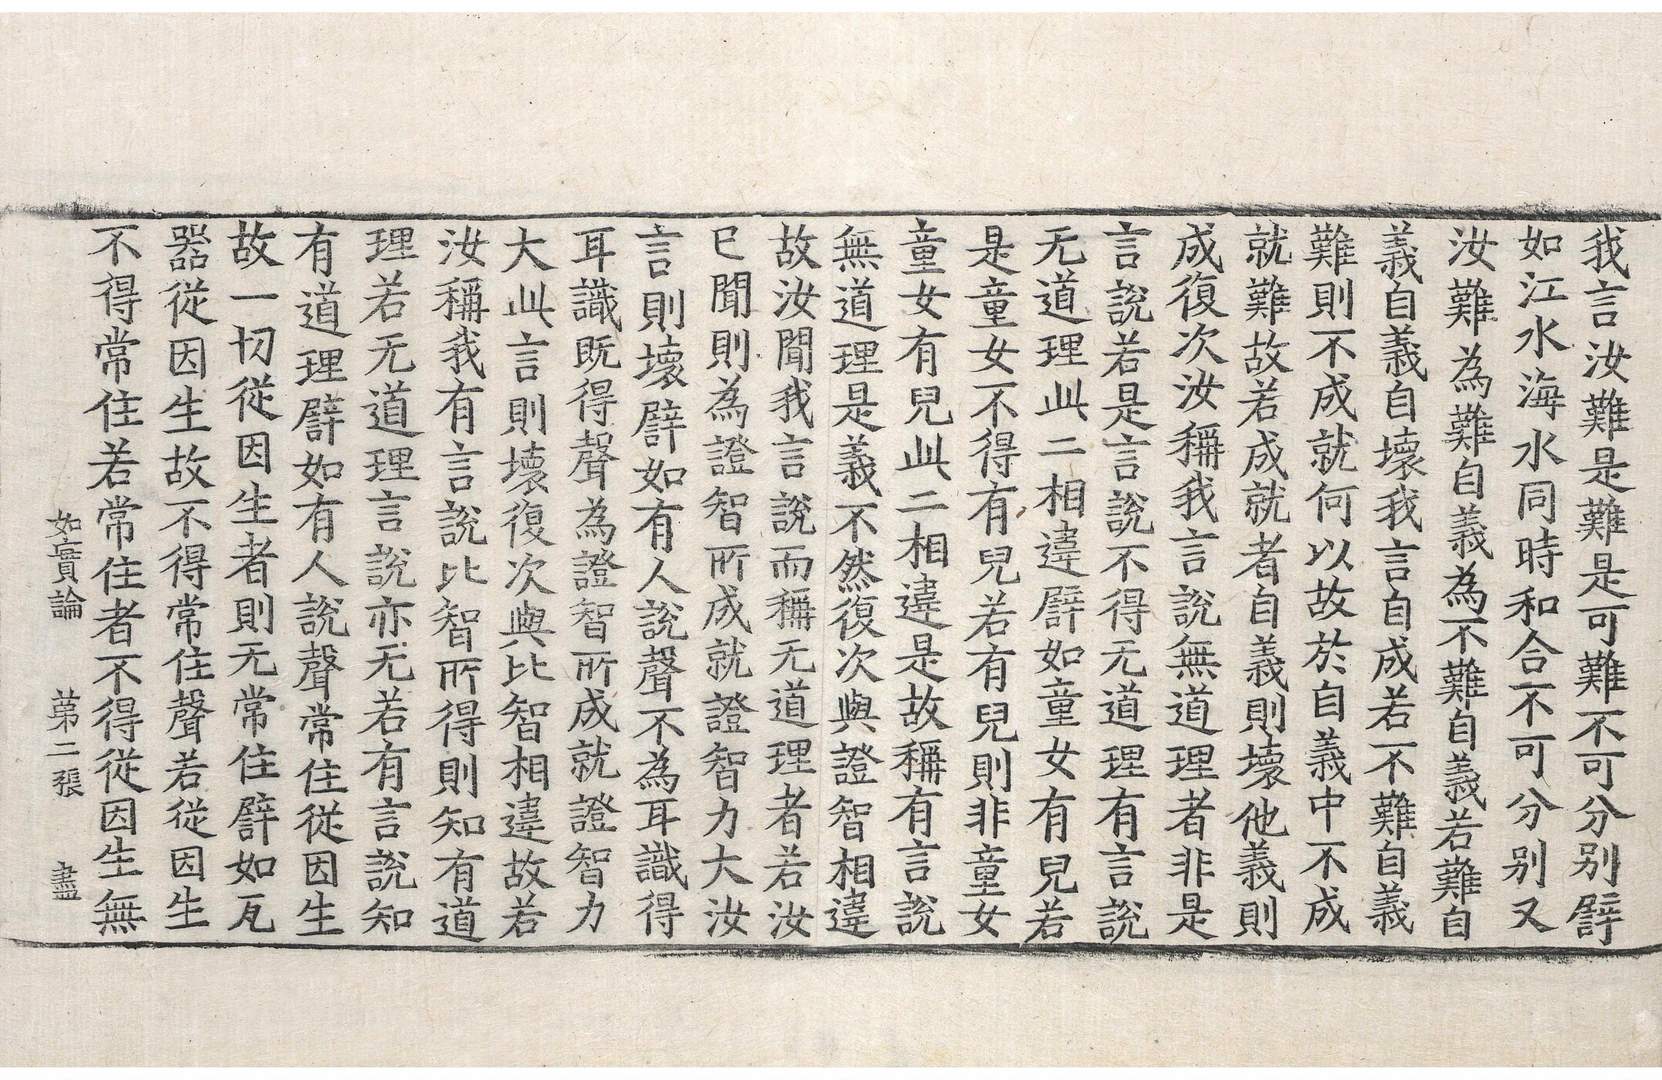 我言汝難是難是可難不可分別譬
如江水海水同時和合不可分別又
汝難為難自義為不難自義若難自
義自義自壞我言自成若不難自義
難則不成就何以故於自義中不成
就難故若成就者自義則壞他義則
成復次汝稱我言說無道理者非是
言說若是言說不得无道理有言說
无道理此二相違譬如童女有兒若
是童女不得有兒若有兒則非童女
童女有兒此二相違是故稱有言說
無道理是義不然復次與證智相違
故汝聞我言說而稱无道理者若汝
已聞則為證智所成就證智力大汝
言則壞譬如有人說聲不為耳識得
耳識既得聲為證智所成就證智力
大此言則壞復次與比智相違故若
汝稱我有言說比智所得則知有道
理若无道理言說亦无若有言說知
有道理譬如有人說聲常住從因生
故一切從因生者則无常住譬如瓦
器從因生故不得常住聲若從因生
不得常住若常住者不得從因生無
如實論　第二張　盡